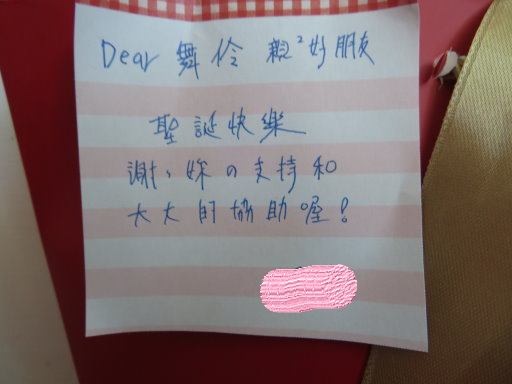 Dear 舞伶 親²好朋友
聖誕快樂
謝、妳の支持和
大大的協助喔!